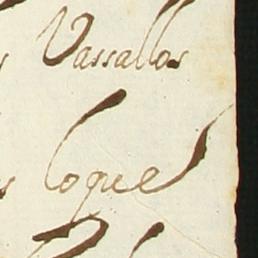 s Vassallos
s loque